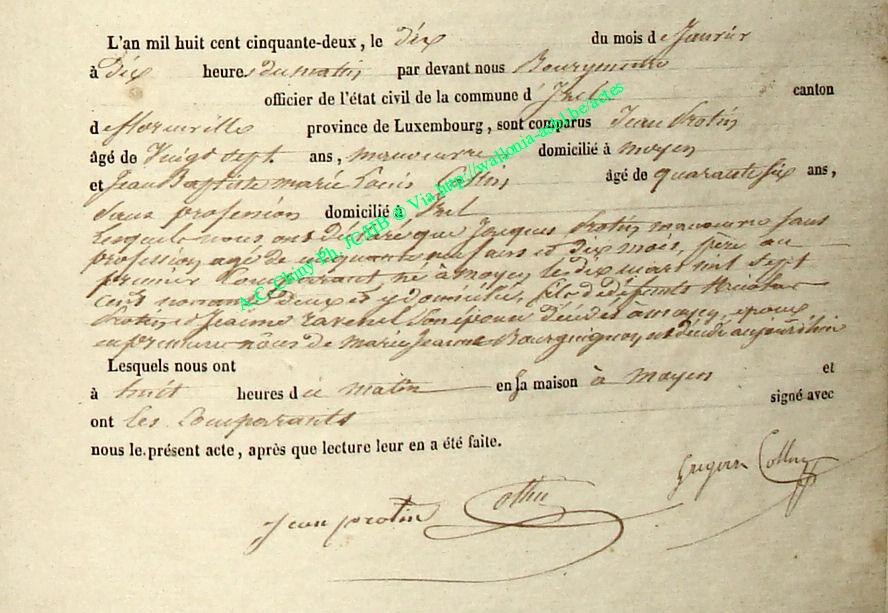 L'an mil huit cent cinquante-deux, le dix du mois de Janvier
à dix heures du matin par devant nous Bourgmestre
officier de l'état civil de la commune d' Izel canton
de florenville province de Luxembourg, sont comparus Jean Protin
âgé de Vingt sept ans, manoeuvre domicilié à moyen
et Jean Baptiste marie Louis Collin, âgé de quarante six ans,
sans profession domicilié à Izel
Lesquels nous ont déclaré que Jacques Protin manoeuvre sans
profession, agé de cinquante neuf ans et dix mois, père au
premier Comparant, né à moyen le dix mars mil sept
cent nonante deux et y domicilié, fils de défunts
Protin et Jeanne ravenel son épouse décédés à moyen, époux
en premières noces de marie Jeanne Bourguignon, est décédé aujourd'hui
Lesquels nous ont
à huit heures du matin en sa maison à moyen et
ont les Comparants signé avec
nous le présent acte, après que lecture leur en a été faite.
Jean protin Collin
A.C. Chiny Ph. JC-HB @ Via http://wallonia-asbl.be/actes